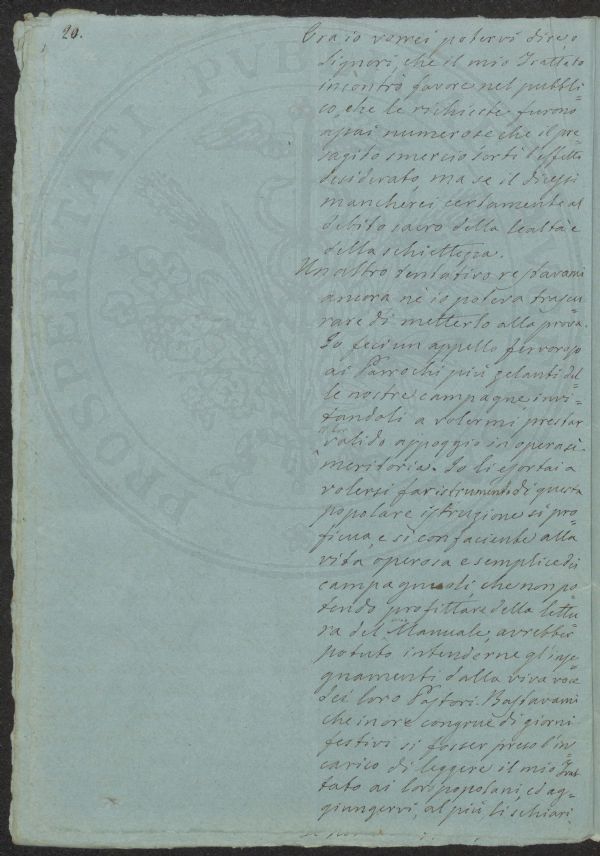 20.
Ora io vorrei potervi dire, o
Signori, che il mio Trattato
incontrò favore nel pubbli=
co, che le richieste furono
assai numerose che il pre=
sagito smercio sortì l'effetto
desiderato, ma se il dicessi
mancherei certamente al
debito sacro della lealtà e
della schiettezza.
Un altro tentativo restavami
ancora nè io poteva trascu=
rare di metterlo alla prova.
Io feci un appello fervoroso
ai Parrochi più zelanti del=
le nostre campagne invi=
tandoli a volermi prestar
valido appoggio in opera sì
meritoria. Io li esortai a
volersi far istrumenti di questa
popolare istruzione sì pro=
ficua, e sì confaciente alla
vita operosa e semplice dei
campagnuoli, che non po=
tendo profittare della lettu=
ra del Manuale, avrebber
potuto intenderne gl'inse=
gnamenti dalla viva voce
dei loro Pastori. Bastavami
che in ore congrue di giorni
festivi si fosser preso l'in=
carico di leggere il mio Trat=
tato ai lor popolani, ed ag=
giungervi, al più, li schiari
PROSPERITATI PVBLICAE